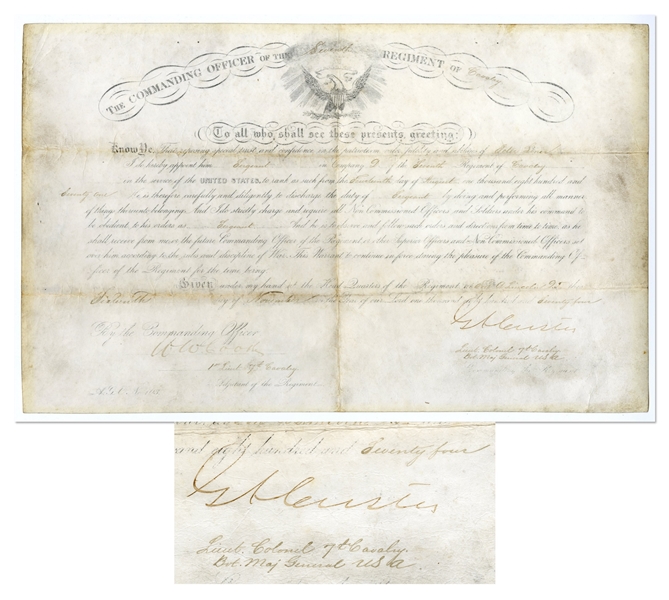 THE COMMANDING OFFICER OF THE Seventh REGIMENT OF Cavalry
To all who shall see these presents, greeting:
Know Ye, That reposing special trust and confidence in the patriotism, valor, fidelity and abilities of
I do hereby appoint him Sergeant in Company D of the Seventh Regiment of Cavalry
in the service of the UNITED STATES, to rank as such from the day of August one thousand eight hundred and
Seventy He is therefore carefully and diligently to discharge the duty of Sergeant by doing and performing all manner
of things thereunto belonging. And I do strictly charge and require all Non Commissioned Officers and Soldiers under his command to
be obedient to his orders as Sergeant And he is to observe and follow such orders and directions from time to time as he
shall receive from me or the future Commanding Officer of the Regiment or other Superior Officers and Non Commissioned Officers set
over him according to the rules and discipline of War. This Warrant to continue in force during the pleasure of the Commanding Of-
ficer of the Regiment for the time being.
Given under my hand at the Head Quarters of the Regiment
day of in the year of our Lord one thousand eight hundred and Seventy four
By the Commanding Officer
W W Cook
1st Lieut 7th Cavalry
Adjutant of the Regiment
GACuster
Lieut Colonel 7th Cavalry
Bvt. Maj General U S A
and eight hundred and Seventy four
GACuster
Lieut. Colonel 7th Cavalry
Bvt. Maj General U S A